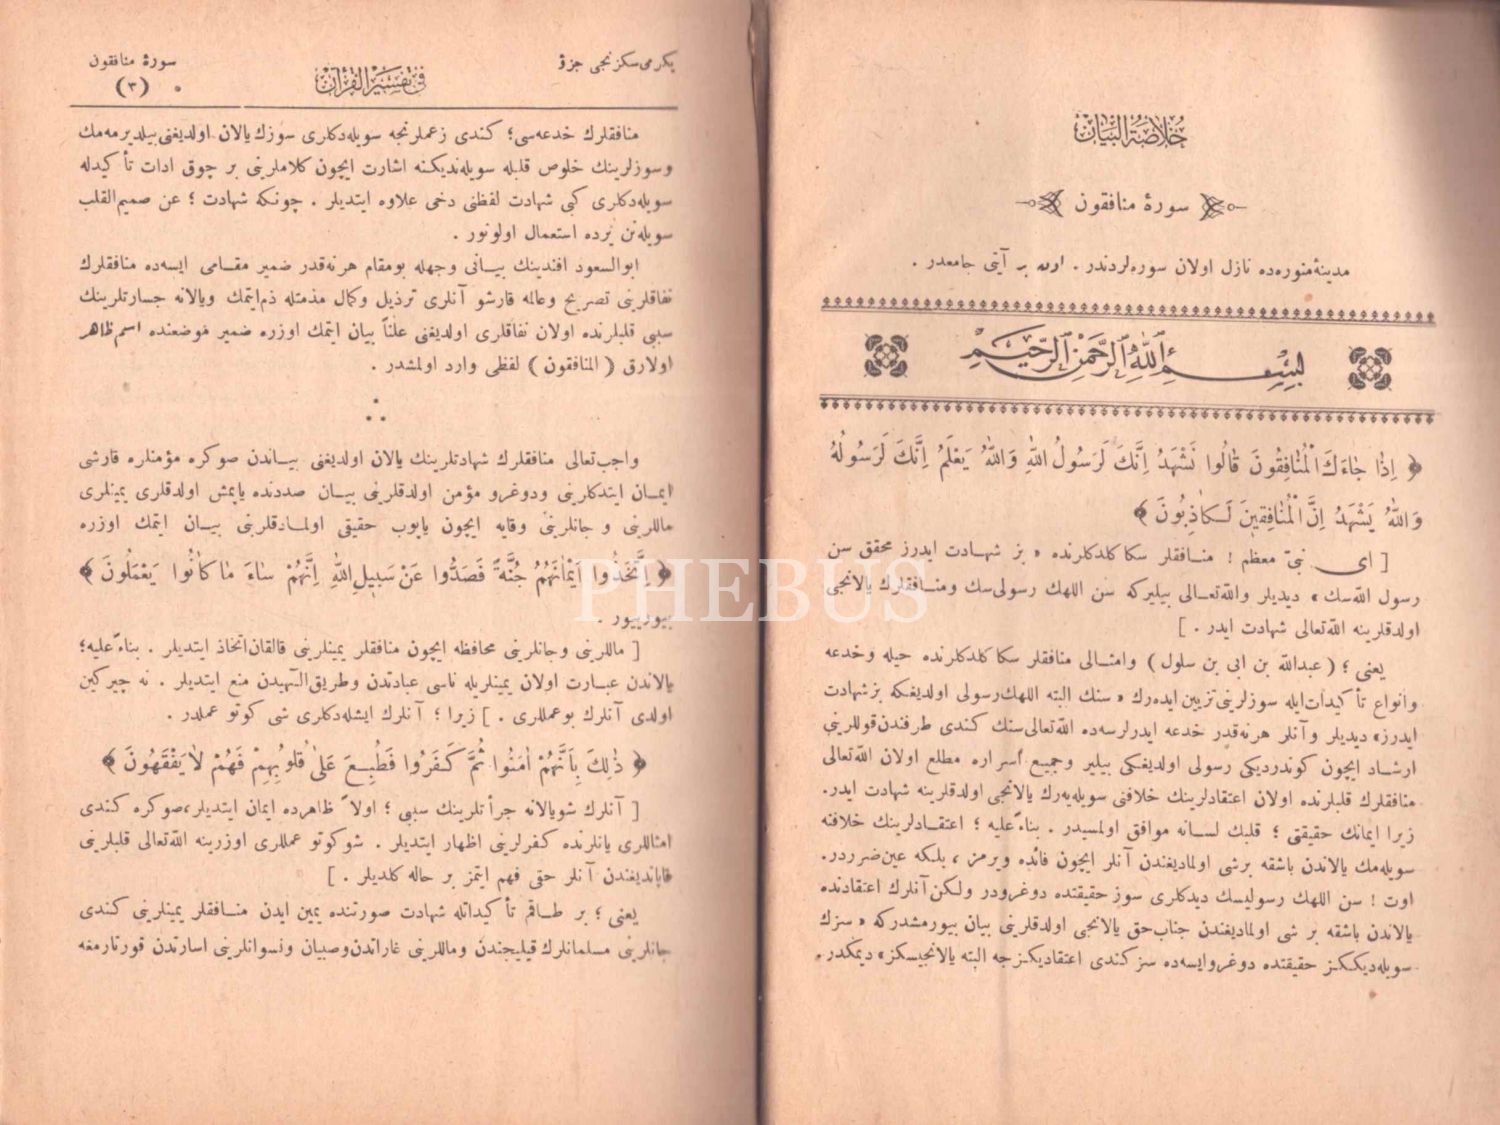 خلاصة البيان
سورۀ منافقون
مدينۀ منوره‌ده نازل اولان سوره‌لردندر . اون بر آيتى جامعدر .
بسم الله الرحمن الرحيم
﴿ اِذَا جَاءَكَ الْمُنَافِقُونَ قَالُوا نَشْهَدُ اِنَّكَ لَرَسُولُ اللهِ وَاللهُ يَعْلَمُ اِنَّكَ لَرَسُولُهُ
وَاللهُ يَشْهَدُ اِنَّ الْمُنَافِقِينَ لَكَاذِبُونَ ﴾
[ اى نبىّ معظم ! منافقلر سكا كلدكلرنده « بز شهادت ايدرز محقق سن
رسول الله‌سك » ديديلر والله‌تعالى بيليركه سن اللهك رسولى‌سك ومنافقلرك يالانجى
اولدقلرينه الله‌تعالى شهادت ايدر . ]
يعنى ؛ ( عبدالله بن ابى بن سلول ) وامثالى منافقلر سكا كلدكلرنده حيله وخدعه
وانواع تأكيدات‌ايله سوزلرينى تزيين ايده‌رك « سنك البته اللهك رسولى اولديغكه بز شهادت
ايدرز » ديديلر وآنلر هرنه‌قدر خدعه ايدرلرسه‌ده الله‌تعالى سنك كندى طرفندن قوللرينى
ارشاد ايچون كوندرديكى رسولى اولديغكى بيلير وجميع أسراره مطلع اولان الله‌تعالى
منافقلرك قلبلرنده اولان اعتقادلرينك خلافنى سويله‌يه‌رك يالانجى اولدقلرينه شهادت ايدر.
زيرا ايمانك حقيقتى ؛ قلبك لسانه موافق اولمسيدر . بناءً عليه ؛ اعتقادلرينك خلافنه
سويله‌مك يالاندن باشقه برشى اولماديغندن آنلر ايچون فائده ويرمز ، بلكه عين ضرردر.
اوت ! سن اللهك رسوليسك ديدكلرى سوز حقيقتده دوغرودر ولكن آنلرك اعتقادنده
يالاندن باشقه بر شى اولماديغندن جناب‌حق يالانجى اولدقلرينى بيان بيورمشدركه « سزك
سويله‌ديككز حقيقتده دوغروايسه‌ده سز كندى اعتقاديكزجه البته يالانجيسكز » ديمكدر.
يكرمى سكزنجى جزؤ
فى تفسير القرآن
سورۀ منافقون
(٣)
منافقلرك خدعه‌سى ؛ كندى زعملرنجه سويله‌دكلرى سوزك يالان اولديغنى بيلديرمه‌مك
وسوزلرينك خلوص قلبله سويله‌نديكنه اشارت ايچون كلاملرينى بر چوق ادات تأكيدله
سويله‌دكلرى كبى شهادت لفظنى دخى علاوه ايتديلر . چونكه شهادت ؛ عن صميم‌القلب
سويله‌نن يرده استعمال اولونور .
ابوالسعود افندينك بيانى وجهله بومقام هرنه‌قدر ضمير مقامى ايسه‌ده منافقلرك
نفاقلرينى تصريح وعالمه قارشو آنلرى ترذيل وكمال مذمتله ذم‌ايتمك ويالانه جسارتلرينك
سببى قلبلرنده اولان نفاقلرى اولديغنى علناً بيان ايتمك اوزره ضمير موضعنده اسم ظاهر
اولارق ( المنافقون ) لفظى وارد اولمشدر .
واجب‌تعالى منافقلرك شهادتلرينك يالان اولديغنى بياندن صوكره مؤمنلره قارشى
ايمان ايتدكلرينى ودوغرو مؤمن اولدقلرينى بيان صددنده يايمش اولدقلرى يمينلرى
ماللرينى و جانلرينى وقايه ايچون يايوب حقيقى اولمادقلرينى بيان ايتمك اوزره
﴿ اِتَّخَذُوا اَيْمَانَهُمْ جُنَّةً فَصَدُّوا عَنْ سَبِيلِ اللهِ اِنَّهُمْ سَاءَ مَا كَانُوا يَعْمَلُونَ ﴾
بيورييور .
[ ماللرينى وجانلرينى محافظه ايچون منافقلر يمينلرينى قالقان اتخاذ ايتديلر . بناءً عليه؛
يالاندن عبارت اولان يمينلريله ناسى عبادتدن وطريق‌الٓهيدن منع ايتديلر . نه چيركين
اولدى آنلرك بوعمللرى . ] زيرا ؛ آنلرك ايشله‌دكلرى شى كوتو عملدر.
﴿ ذٰلِكَ بِاَنَّهُمْ اٰمَنُوا ثُمَّ كَفَرُوا فَطُبِعَ عَلٰى قُلُوبِهِمْ فَهُمْ لَا يَفْقَهُونَ ﴾
[ آنلرك شويالانه جرأتلرينك سببى ؛ اولاً ظاهرده ايمان ايتديلر،صوكره كندى
امثاللرى يانلرنده كفرلرينى اظهار ايتديلر . شوكوتو عمللرى اوزرينه الله‌تعالى قلبلرينى
قاپاديغندن آنلر حقى فهم ايتمز بر حاله كلديلر . ]
يعنى ؛ بر طاقم تأكيداتله شهادت صورتنده يمين ايدن منافقلر يمينلرينى كندى
جانلرينى مسلمانلرك قيليجندن وماللرينى غارتدن وصبيان ونسوانلرينى اسارتدن قورتارمغه
PHEBUS